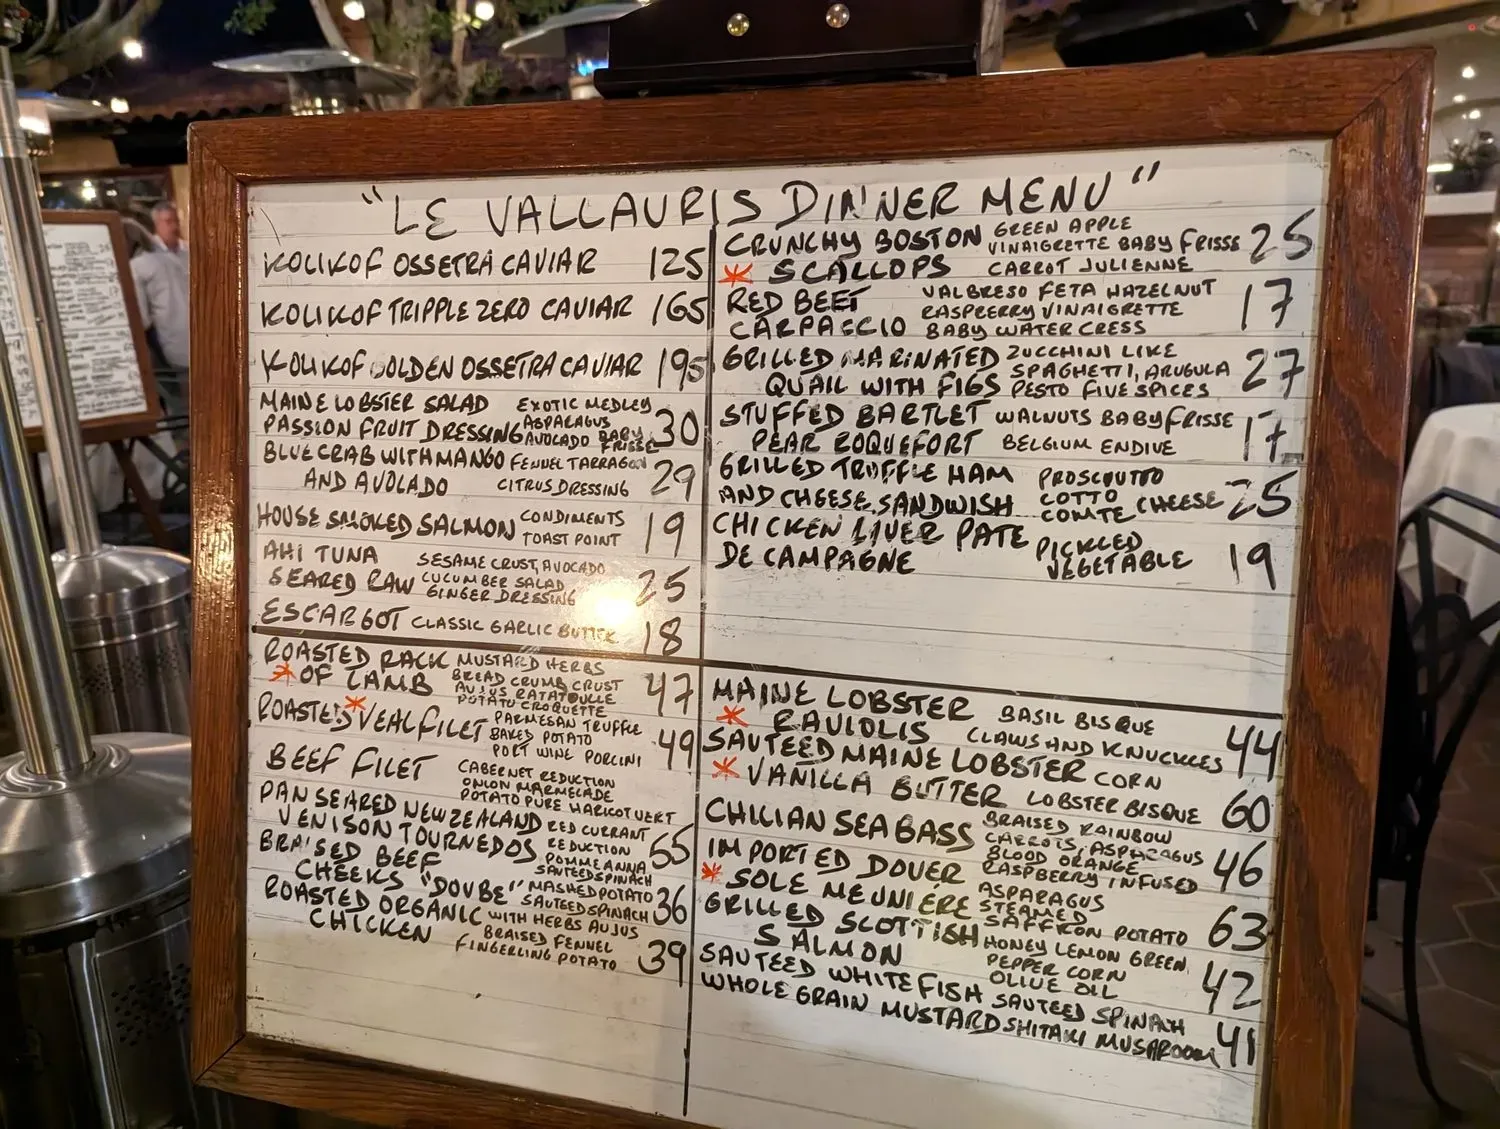 "LE VALLAURIS DINNER MENU"
KOLIKOF OSSETRA CAVIAR 125
KOLIKOF TRIPPLE ZERO CAVIAR 165
KOLIKOF GOLDEN OSSETRA CAVIAR 195
MAINE LOBSTER SALAD EXOTIC MEDLEY
PASSION FRUIT DRESSING ASPARAGUS
AVOCADO BABY FRISSE 30
BLUE CRAB WITH MANGO FENNEL TARRAGON
AND AVOLADO CITRUS DRESSING 29
HOUSE SMOKED SALMON CONDIMENTS
TOAST POINT 19
AHI TUNA SESAME CRUST, AVOCADO
SEARED RAW CUCUMBER SALAD
GINGER DRESSING 25
ESCARGOT CLASSIC GARLIC BUTTER 18
CRUNCHY BOSTON GREEN APPLE
VINAIGRETTE BABY FRISSE 25
* SCALLOPS CARROT JULIENNE
RED BEET VALBRESO FETA HAZELNUT
RASPBERRY VINAIGRETTE 17
CARPACCIO BABY WATERCRESS
GRILLED MARINATED ZUCCHINI LIKE
SPAGHETTI, ARUGULA 27
QUAIL WITH FIGS PESTO FIVE SPICES
STUFFED BARTLET WALNUTS BABY FRISSE
PEAR ROQUEFORT BELGIUM ENDIVE 17
GRILLED TRUFFLE HAM PROSCOUTTO
AND CHEESE SANDWISH COTTO
COMTE CHEESE 25
CHICKEN LIVER PATE PICKLED
DE CAMPAGNE VEGETABLE 19
ROASTED RACK MUSTARD HERBS
* OF LAMB BREAD CRUMB CRUST
AUJUS RATATOULLE 47
POTATO CROQUETTE
ROASTED * VEAL FILET PARMESAN TRUFFLE
BAKED POTATO
PORT WINE PORCINI 49
BEEF FILET CABERNET REDUCTION
ONION MARMELADE
POTATO PURE HARICOT VERT
PAN SEARED NEW ZEALAND RED CURRANT
VENISON TOURNEDOS REDUCTION 55
POMME ANNA
SAUTEED SPINACH
BRAISED BEEF
CHEEKS "DOVBE" MASHED POTATO
SAUTEED SPINACH 36
ROASTED ORGANIC WITH HERBS AUJUS
CHICKEN BRAISED FENNEL
FINGERLING POTATO 39
MAINE LOBSTER BASIL BISQUE
* RAVIOLIS CLAWS AND KNUCKLES 44
SAUTEED MAINE LOBSTER CORN
* VANILLA BUTTER LOBSTER BISQUE 60
CHILIAN SEA BASS BRAISED RAINBOW
CARROTS, ASPARAGUS
BLOOD ORANGE 46
RASPBERRY INFUSED
IMPORTED DOVER
* SOLE MEUNIERE ASPARAGUS
STEAMED
SAFFRON POTATO 63
GRILLED SCOTTISH HONEY LEMON GREEN
SALMON PEPPER CORN
OLIVE OIL 42
SAUTEED WHITE FISH SAUTEED SPINACH
WHOLE GRAIN MUSTARD SHITAKI MUSHROOM 41